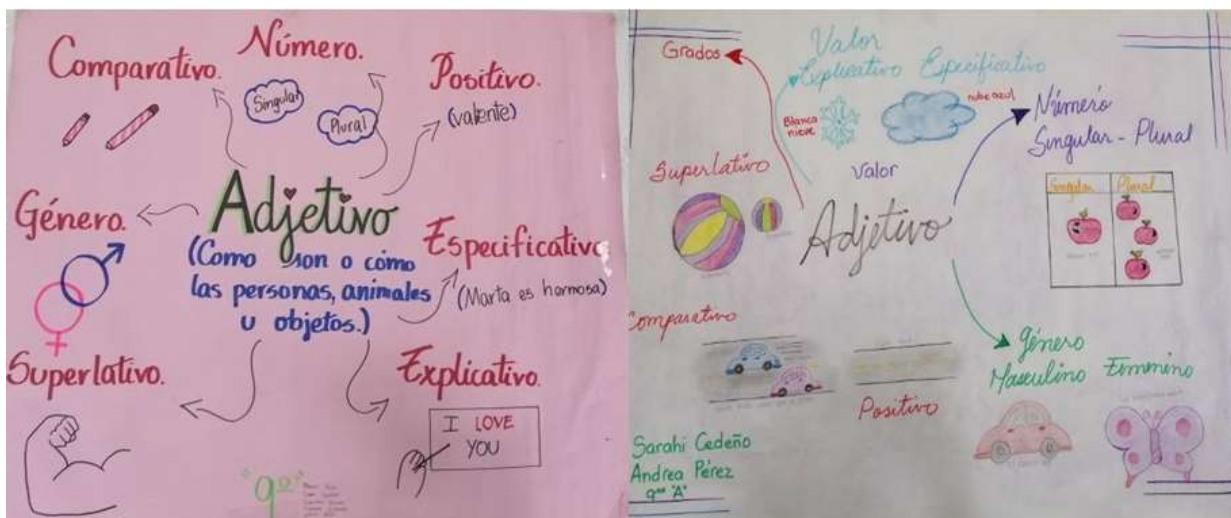 Comparativo.
Número.
Singular
Plural
Positivo.
(valiente)
Género.
Adjetivo
(Como son o cómo
las personas, animales
u objetos.)
Especificativo
(Marta es hermosa)
Superlativo.
Explicativo.
I LOVE
YOU
"9no"
Grados
Valor
Explicativo Especificativo
Blanca
nieve
nube azul
Número
Singular - Plural
Singular Plural
Superlativo
Valor
Adjetivo
Comparativo
Positivo
Género
Masculino Femenino
Sarahi Cedeño
Andrea Pérez
9no "A"